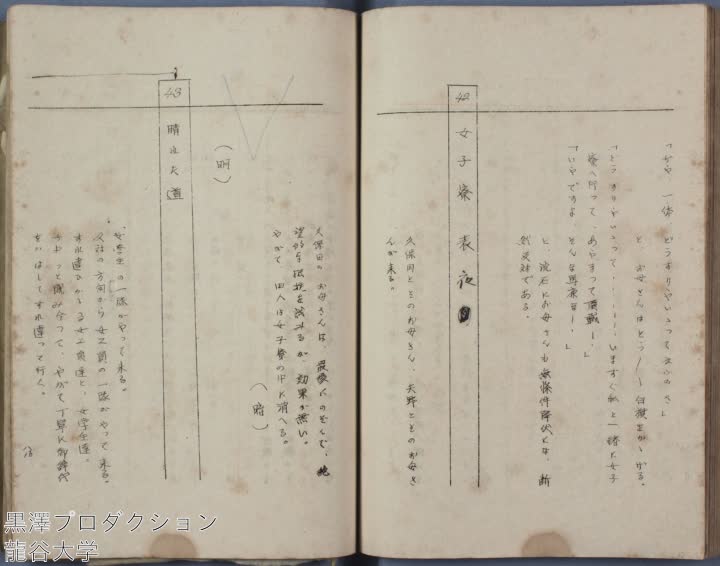 「ぢや、一体、どうすりやいゝつて云ふのさ」
と、お母さんはとう／＼白旗をかゝげる。
「どうすりやいゝつて………いますぐ私と一緒に女子
寮へ行つて、あやまつて頂戴！」
「いやですよ、そんな馬鹿な！」
と、流石にお母さんも無條件降伏とは、断
然反対である。
42 女子寮 表 夜
久保田とそのお母さん、矢野とそのお母さ
んが来る。
久保田のお母さんは、最後にのぞんで、絶
望的な抵抗を試みるが、効果が無い。
やがて、四人は女子寮の中に消へる。
（暗）
（明）
43 晴れた道
女学生の一隊がやつて来る。
会社の方向から女工員の一隊がやつて来る。
すれ違ひかゝる女工員達と、女学生達。
ちよつと睨み合つて、やがて丁寧に御辞儀
をかはしてすれ違つて行く。
黒澤プロダクション
龍谷大学